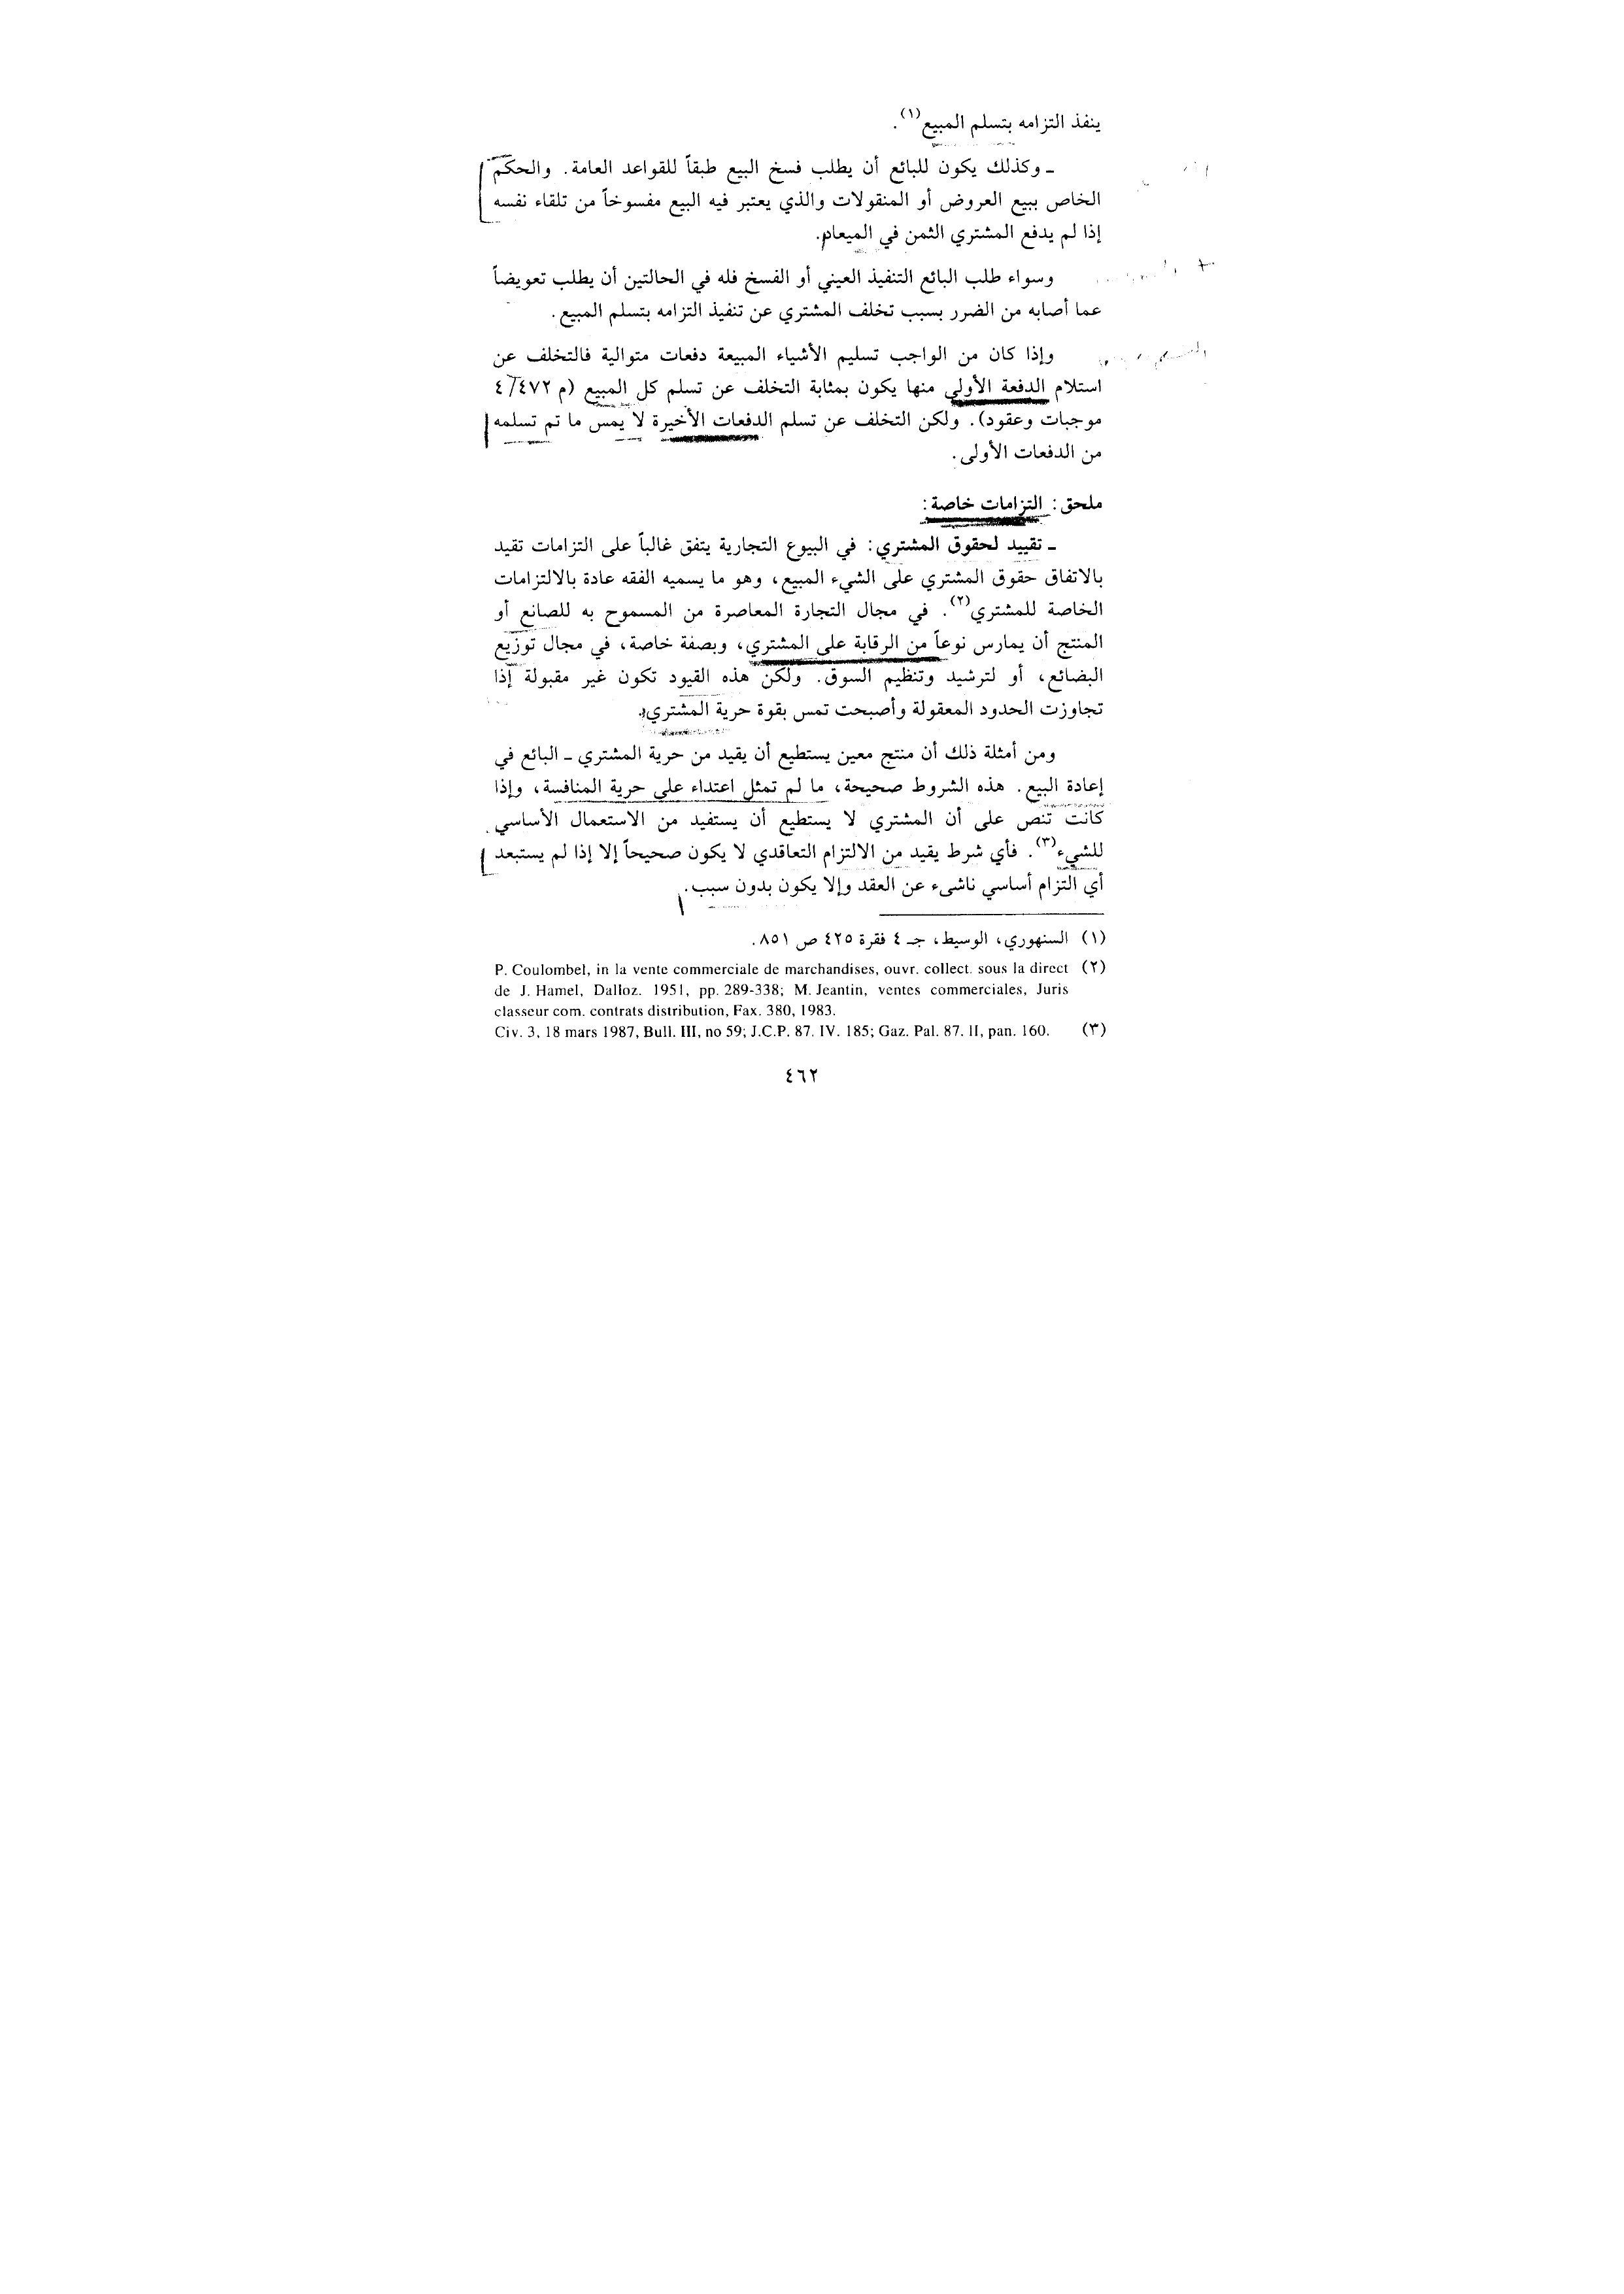 ينفذ التزامه بتسلم المبيع(١).
ـ وكذلك يكون للبائع أن يطلب فسخ البيع طبقاً للقواعد العامة. والحكم
الخاص ببيع العروض أو المنقولات والذي يعتبر فيه البيع مفسوخاً من تلقاء نفسه
إذا لم يدفع المشتري الثمن في الميعاد.
وسواء طلب البائع التنفيذ العيني أو الفسخ فله في الحالتين أن يطلب تعويضاً
عما أصابه من الضرر بسبب تخلف المشتري عن تنفيذ التزامه بتسلم المبيع.
وإذا كان من الواجب تسليم الأشياء المبيعة دفعات متوالية فالتخلف عن
استلام الدفعة الأولى منها يكون بمثابة التخلف عن تسلم كل المبيع (م ٤/٤٧٢
موجبات وعقود). ولكن التخلف عن تسلم الدفعات الأخيرة لا يمس ما تم تسلمه
من الدفعات الأولى.
ملحق: التزامات خاصة:
ـ تقييد لحقوق المشتري: في البيوع التجارية يتفق غالباً على التزامات تقيد
بالاتفاق حقوق المشتري على الشيء المبيع، وهو ما يسميه الفقه عادة بالالتزامات
الخاصة للمشتري(٢). في مجال التجارة المعاصرة من المسموح به للصانع أو
المنتج أن يمارس نوعاً من الرقابة على المشتري، وبصفة خاصة، في مجال توزيع
البضائع، أو لترشيد وتنظيم السوق. ولكن هذه القيود تكون غير مقبولة إذا
تجاوزت الحدود المعقولة وأصبحت تمس بقوة حرية المشتري.
ومن أمثلة ذلك أن منتج معين يستطيع أن يقيد من حرية المشتري ـ البائع في
إعادة البيع. هذه الشروط صحيحة، ما لم تمثل اعتداء على حرية المنافسة، وإذا
كانت تنص على أن المشتري لا يستطيع أن يستفيد من الاستعمال الأساسي
للشيء(٣). فأي شرط يقيد من الالتزام التعاقدي لا يكون صحيحاً إلا إذا لم يستبعد
أي التزام أساسي ناشىء عن العقد وإلا يكون بدون سبب.
(١) السنهوري، الوسيط، جـ ٤ فقرة ٤٢٥ ص ٨٥١.
(٢) P. Coulombel, in la vente commerciale de marchandises, ouvr. collect. sous la direct
de J. Hamel, Dalloz. 1951, pp. 289-338; M. Jeantin, ventes commerciales, Juris
classeur com. contrats distribution, Fax. 380, 1983.
(٣) Civ. 3, 18 mars 1987, Bull. III, no 59; J.C.P. 87. IV. 185; Gaz. Pal. 87. II, pan. 160.
٤٦٢